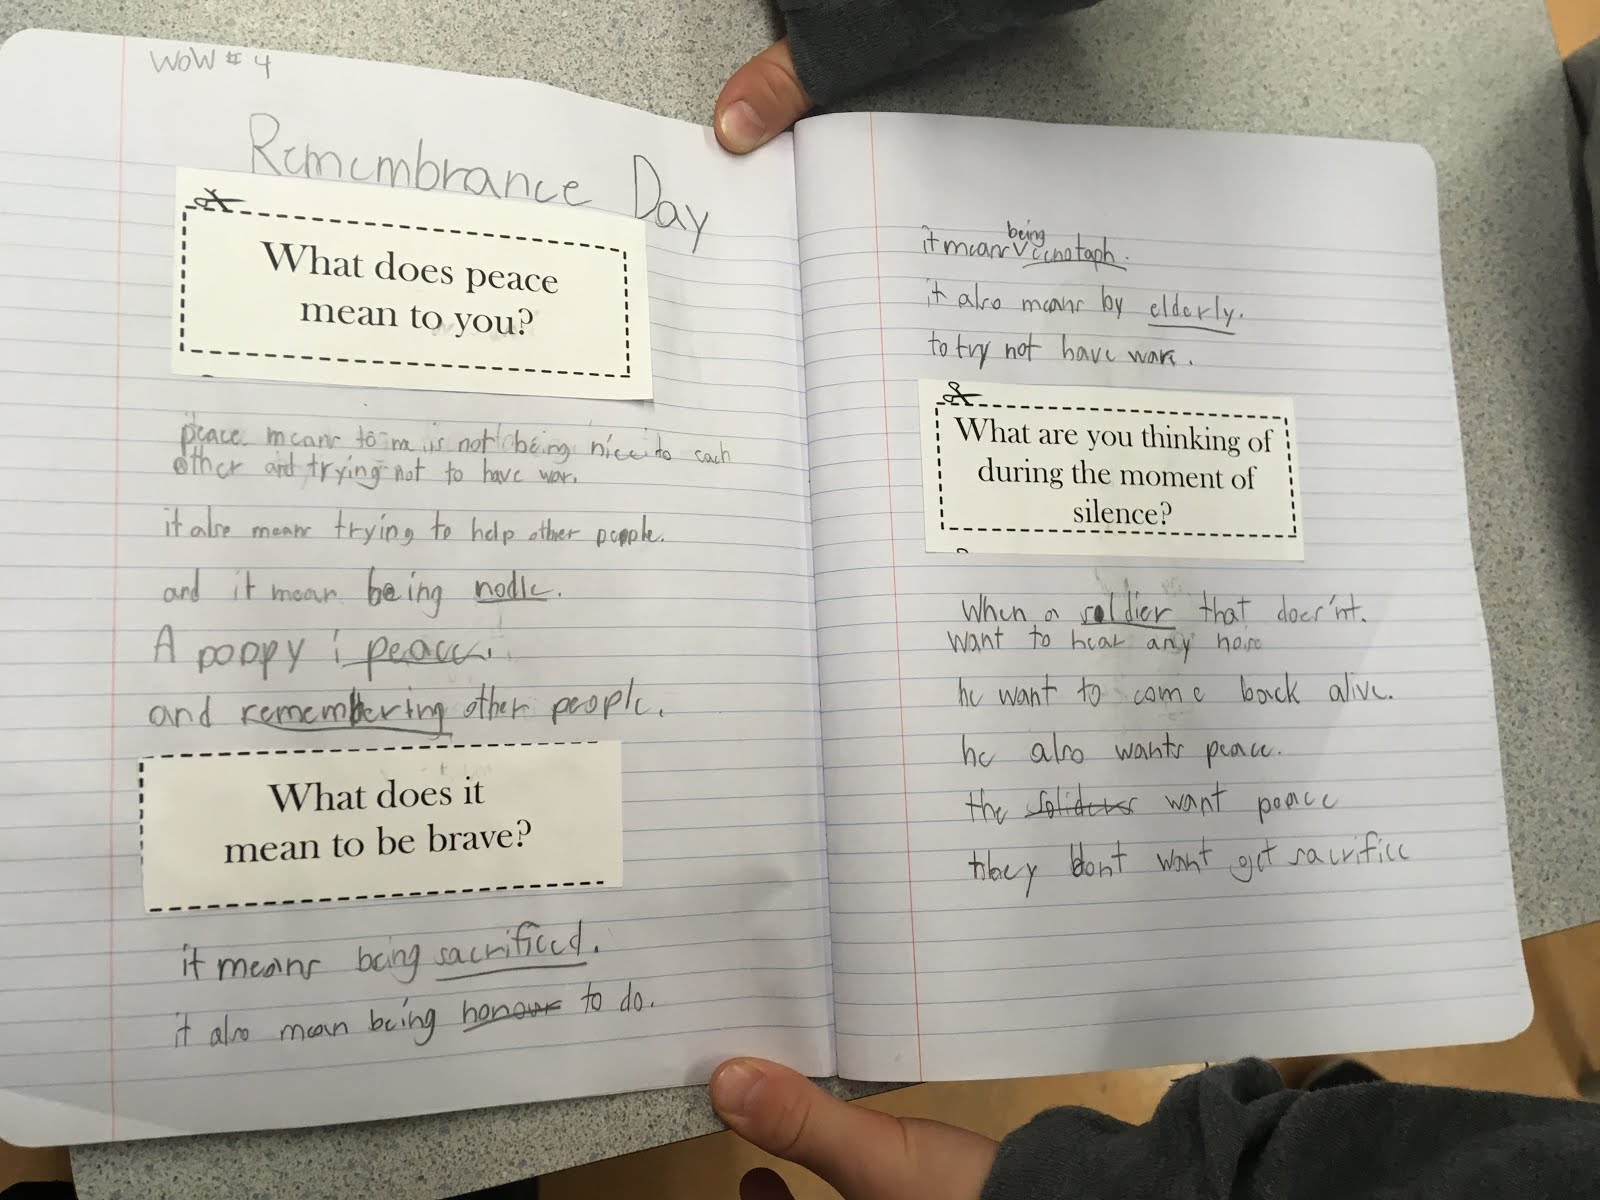 WOW # 4
Remembrance Day
What does peace
mean to you?
peace means to me is not being nice to each
other and trying not to have war.
it also means trying to help other people.
and it mean being nodle.
A poppy i peace.
and remembering other people.
What does it
mean to be brave?
it means being sacrificed.
it also mean being honour to do.
being
it means cenotaph.
it also means by elderly.
to try not have wars.
What are you thinking of
during the moment of
silence?
When a soldier that does'nt.
want to hear any
he want to come back alive.
he also wants peace.
the soliders want peace
they dont want get sacrifice